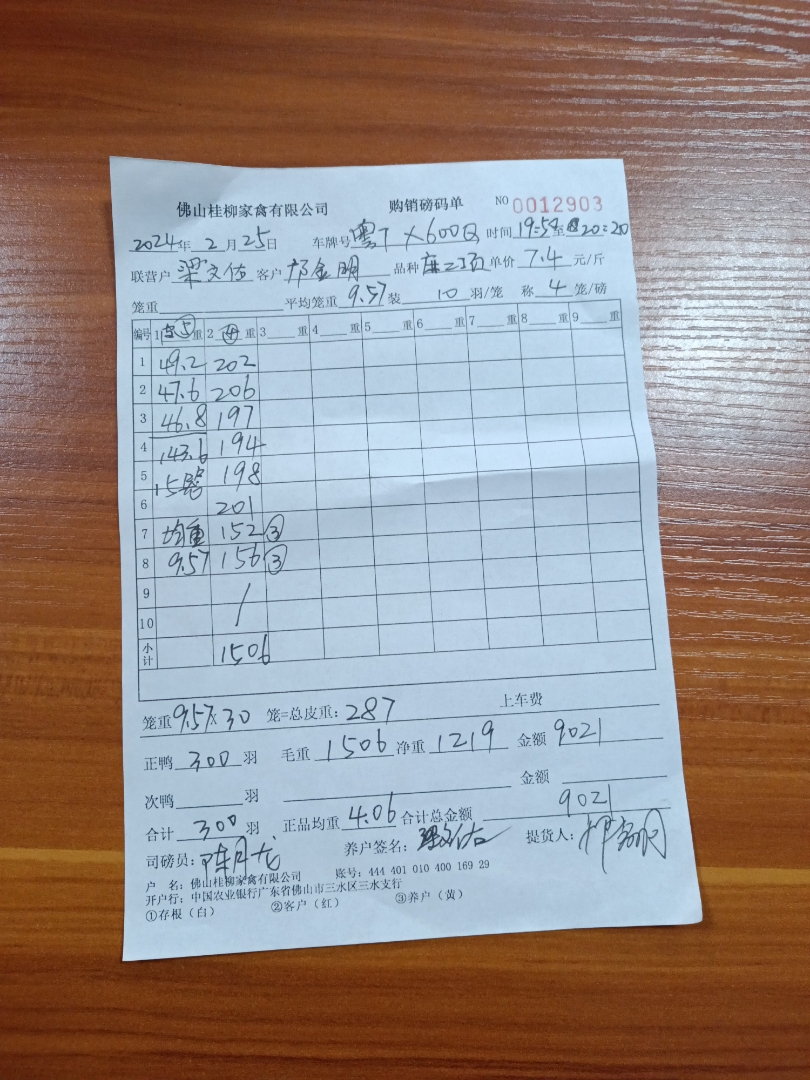 佛山桂柳家禽有限公司 购销磅码单 NO 0012903
2024年 2月25日 车牌号 粤T X600Q 时间 19:58至 20:20
联营户 梁文佐 客户 金明 品种 单价 7.4 元/斤
笼重 平均笼重 9.57 装 10 羽/笼 称 4 笼/磅
编号 1 ⑤ 重 2 ④ 重 3 重 4 重 5 重 6 重 7 重 8 重 9 重
1 49.2 202
2 47.6 206
3 46.8 197
4 143.6 194
5 15 198
6 201
7 均重 152 ③
8 9.57 156 ③
9
10 /
小计 1506
笼重 9.57 X 30 笼=总皮重: 287 上车费
正鸭 300 羽 毛重 1506 净重 1219 金额 9021
次鸭 羽 金额
合计 300 羽 正品均重 4.06 合计总金额 9021
司磅员: 陈月龙 养户签名: 提货人:
户 名: 佛山桂柳家禽有限公司 账号: 444 401 010 400 169 29
开户行: 中国农业银行广东省佛山市三水区三水支行
①存根(白) ②客户(红) ③养户(黄)